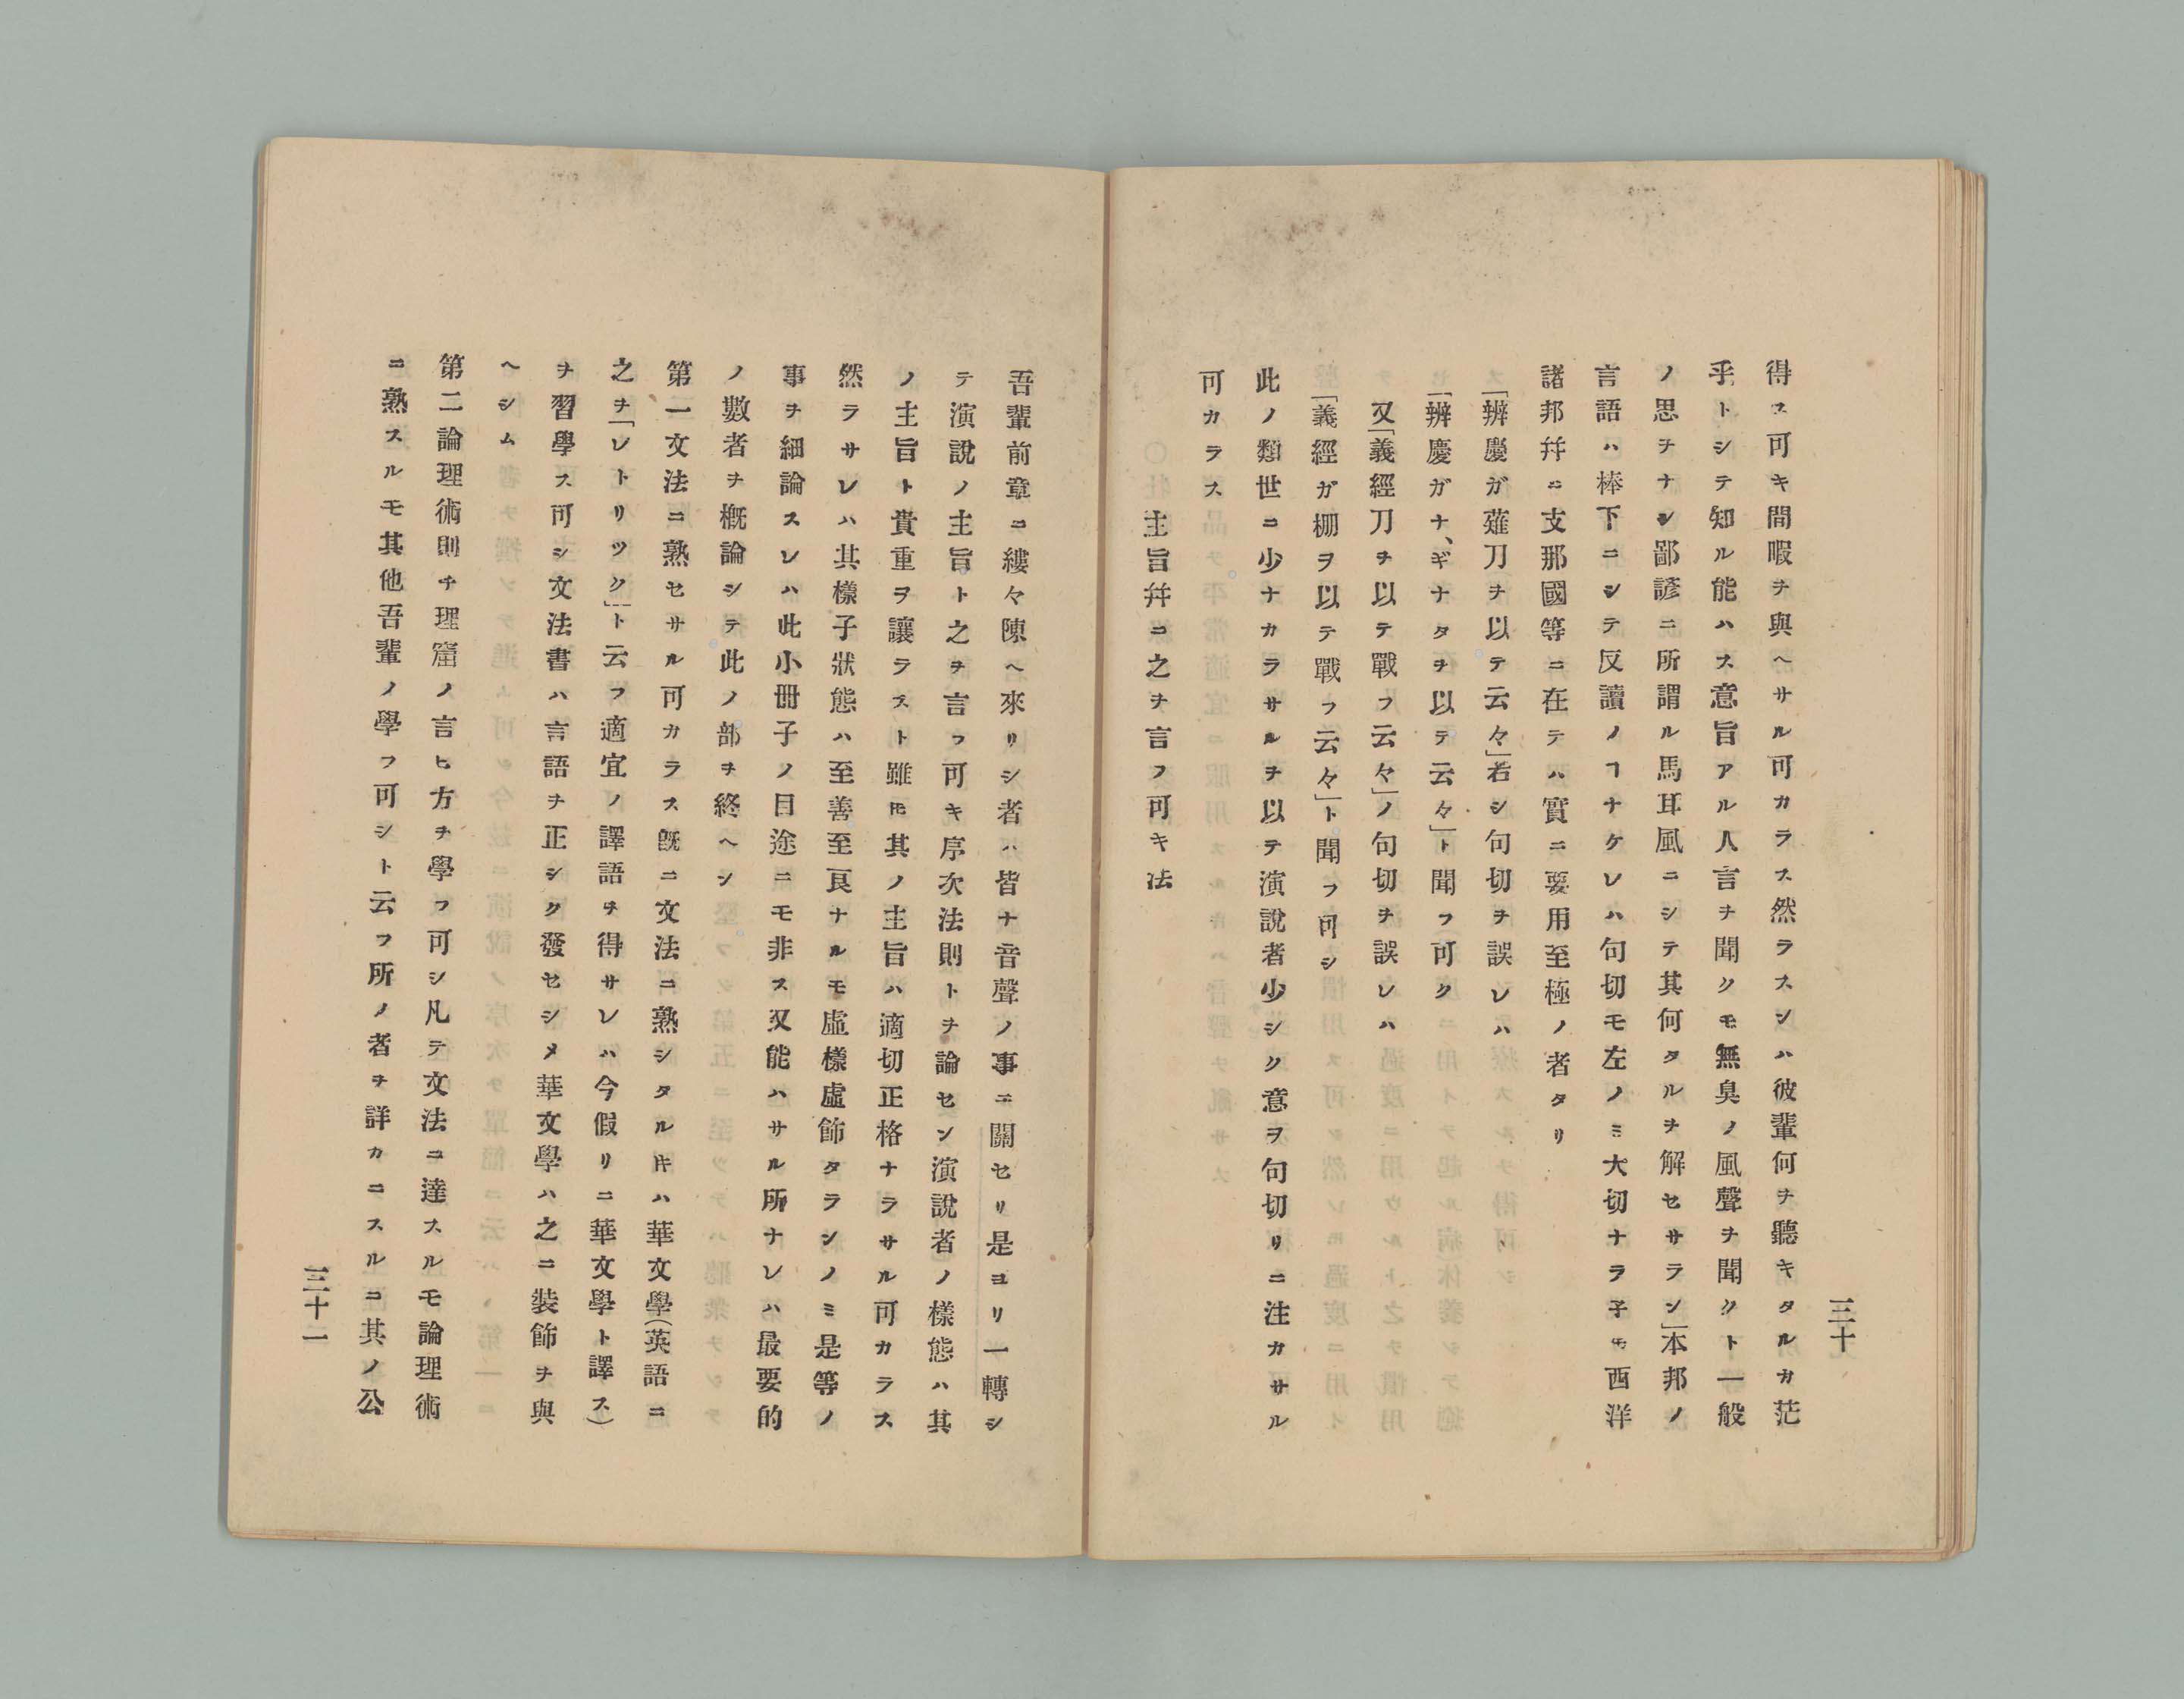 得ス可キ間暇ヲ與ヘサル可カラス然ラスンハ彼輩何ヲ聽キタルカ茫
乎トシテ知ル能ハス意旨アル人言ヲ聞クモ無臭ノ風聲ヲ聞クト一般
ノ思ヲナシ鄙諺ニ所謂ル馬耳風ニシテ其何タルヲ解セサラン」本邦ノ
言語ハ棒下ニシテ反讀ノヿナケレハ句切モ左ノミ大切ナラ子𪜈西洋
諸邦幷ニ支那國等ニ在テハ實ニ要用至極ノ者タリ
「辨慶ガ薙刀ヲ以テ云々」若シ句切ヲ誤レハ
「辨慶ガナ、ギナタヲ以テ云々」ト聞フ可ク
又「義經刀ヲ以テ戰フ云々」ノ句切ヲ誤レハ
「義經ガ棚ヲ以テ戰フ云々」ト聞フ可シ
此ノ類世ニ少ナカラサルヲ以テ演說者少シク意ヲ句切リニ注カサル
可カラス
主旨幷ニ之ヲ言フ可キ法
三十
吾輩前章ニ縷々陳ヘ來リシ者ハ皆ナ音聲ノ事ニ關セリ是ヨリ一轉シ
テ演說ノ主旨ト之ヲ言フ可キ序次法則トヲ論セン演說者ノ樣態ハ其
ノ主旨ト貴重ヲ讓ラスト雖𪜈其ノ主旨ハ適切正格ナラサル可カラス
然ラサレハ其樣子狀態ハ至善至良ナルモ虛樣虛飾タランノミ是等ノ
事ヲ細論スレハ此小冊子ノ目途ニモ非ス又能ハサル所ナレハ最要的
ノ數者ヲ槪論シテ此ノ部ヲ終ヘン
第一文法ニ熟セサル可カラス旣ニ文法ニ熟シタル𪜈ハ華文學(英語ニ
之ヲ「レトリツク」ト云フ適宜ノ譯語ヲ得サレハ今假リニ華文學ト譯ス)
ヲ習學ス可シ文法書ハ言語ヲ正シク發セシメ華文學ハ之ニ裝飾ヲ與
ヘシム
第二論理術則チ理窟ノ言ヒ方ヲ學フ可シ凡テ文法ニ達スルモ論理術
ニ熟スルモ其他吾輩ノ學フ可シト云フ所ノ者ヲ詳カニスルニ其ノ公
三十一